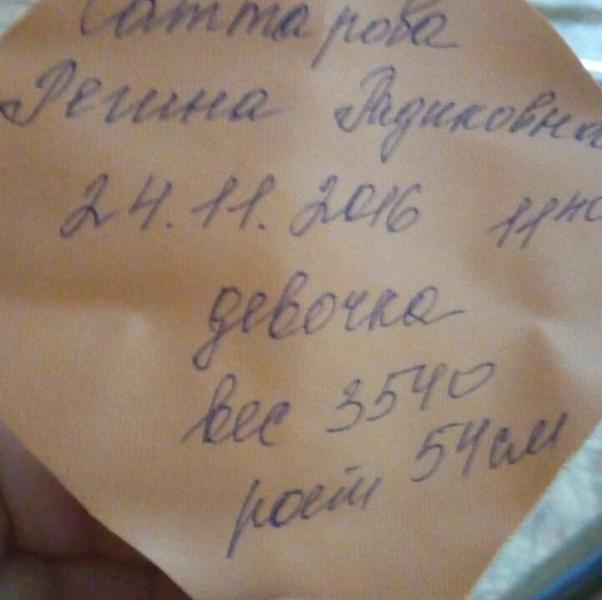 Саттарова
Регина Радиковна
24.11.2016 11 40
девочка
вес 3540
рост 54 см